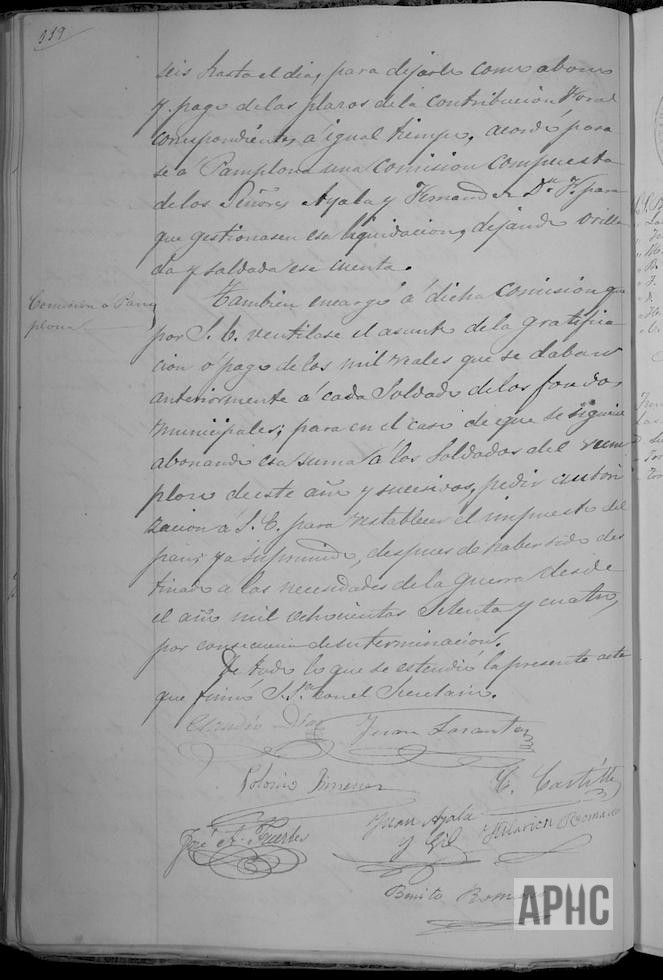 119
seis hasta el dia, para dejarlo como abono
y pago de los plazos de la contribucion Foral
correspondientes á igual tiempo, acordó pasa
se á Pamplona una Comision compuesta
de los Señores Ayala y Fernandez Dn. F. para
que gestionasen esa liquidacion, dejando orilla
da y saldada esa cuenta.
Comision á Pam
plona
Tambien encargó á dicha Comision que
por S. E. ventilase el asunto de la gratifica
cion o pago de los mil reales que se daban
anteriormente á cada Soldado de los fondos
municipales; para en el caso de que se siguiera
abonando esa suma á los Soldados del reem
plazo de este año y sucesivos, pedir autori
zacion á S. E. para restablecer el impuesto del
pan, ya suprimido, despues de haber sido des
tinado a las necesidades de la guerra desde
el año mil ochocientos setenta y cuatro,
por consecuencia de su terminacion.
De todo lo que se estendió la presente acta
que firmó S. Sª. con el Secretario.
Claudio Diaz
Juan
Polonio Jimenez
C. Castillo
José A. Fuertes
Juan Ayala
y Gil
Hilarion Romano
Benito
APHC